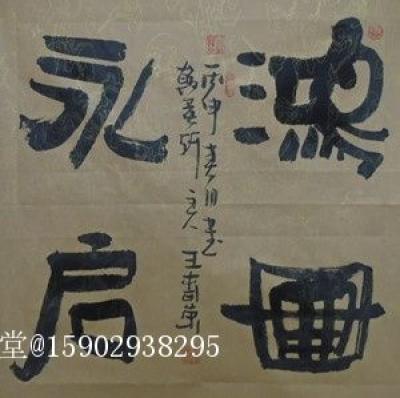 鸿圖
永启
丙申春日書
主人王
堂@15902938295